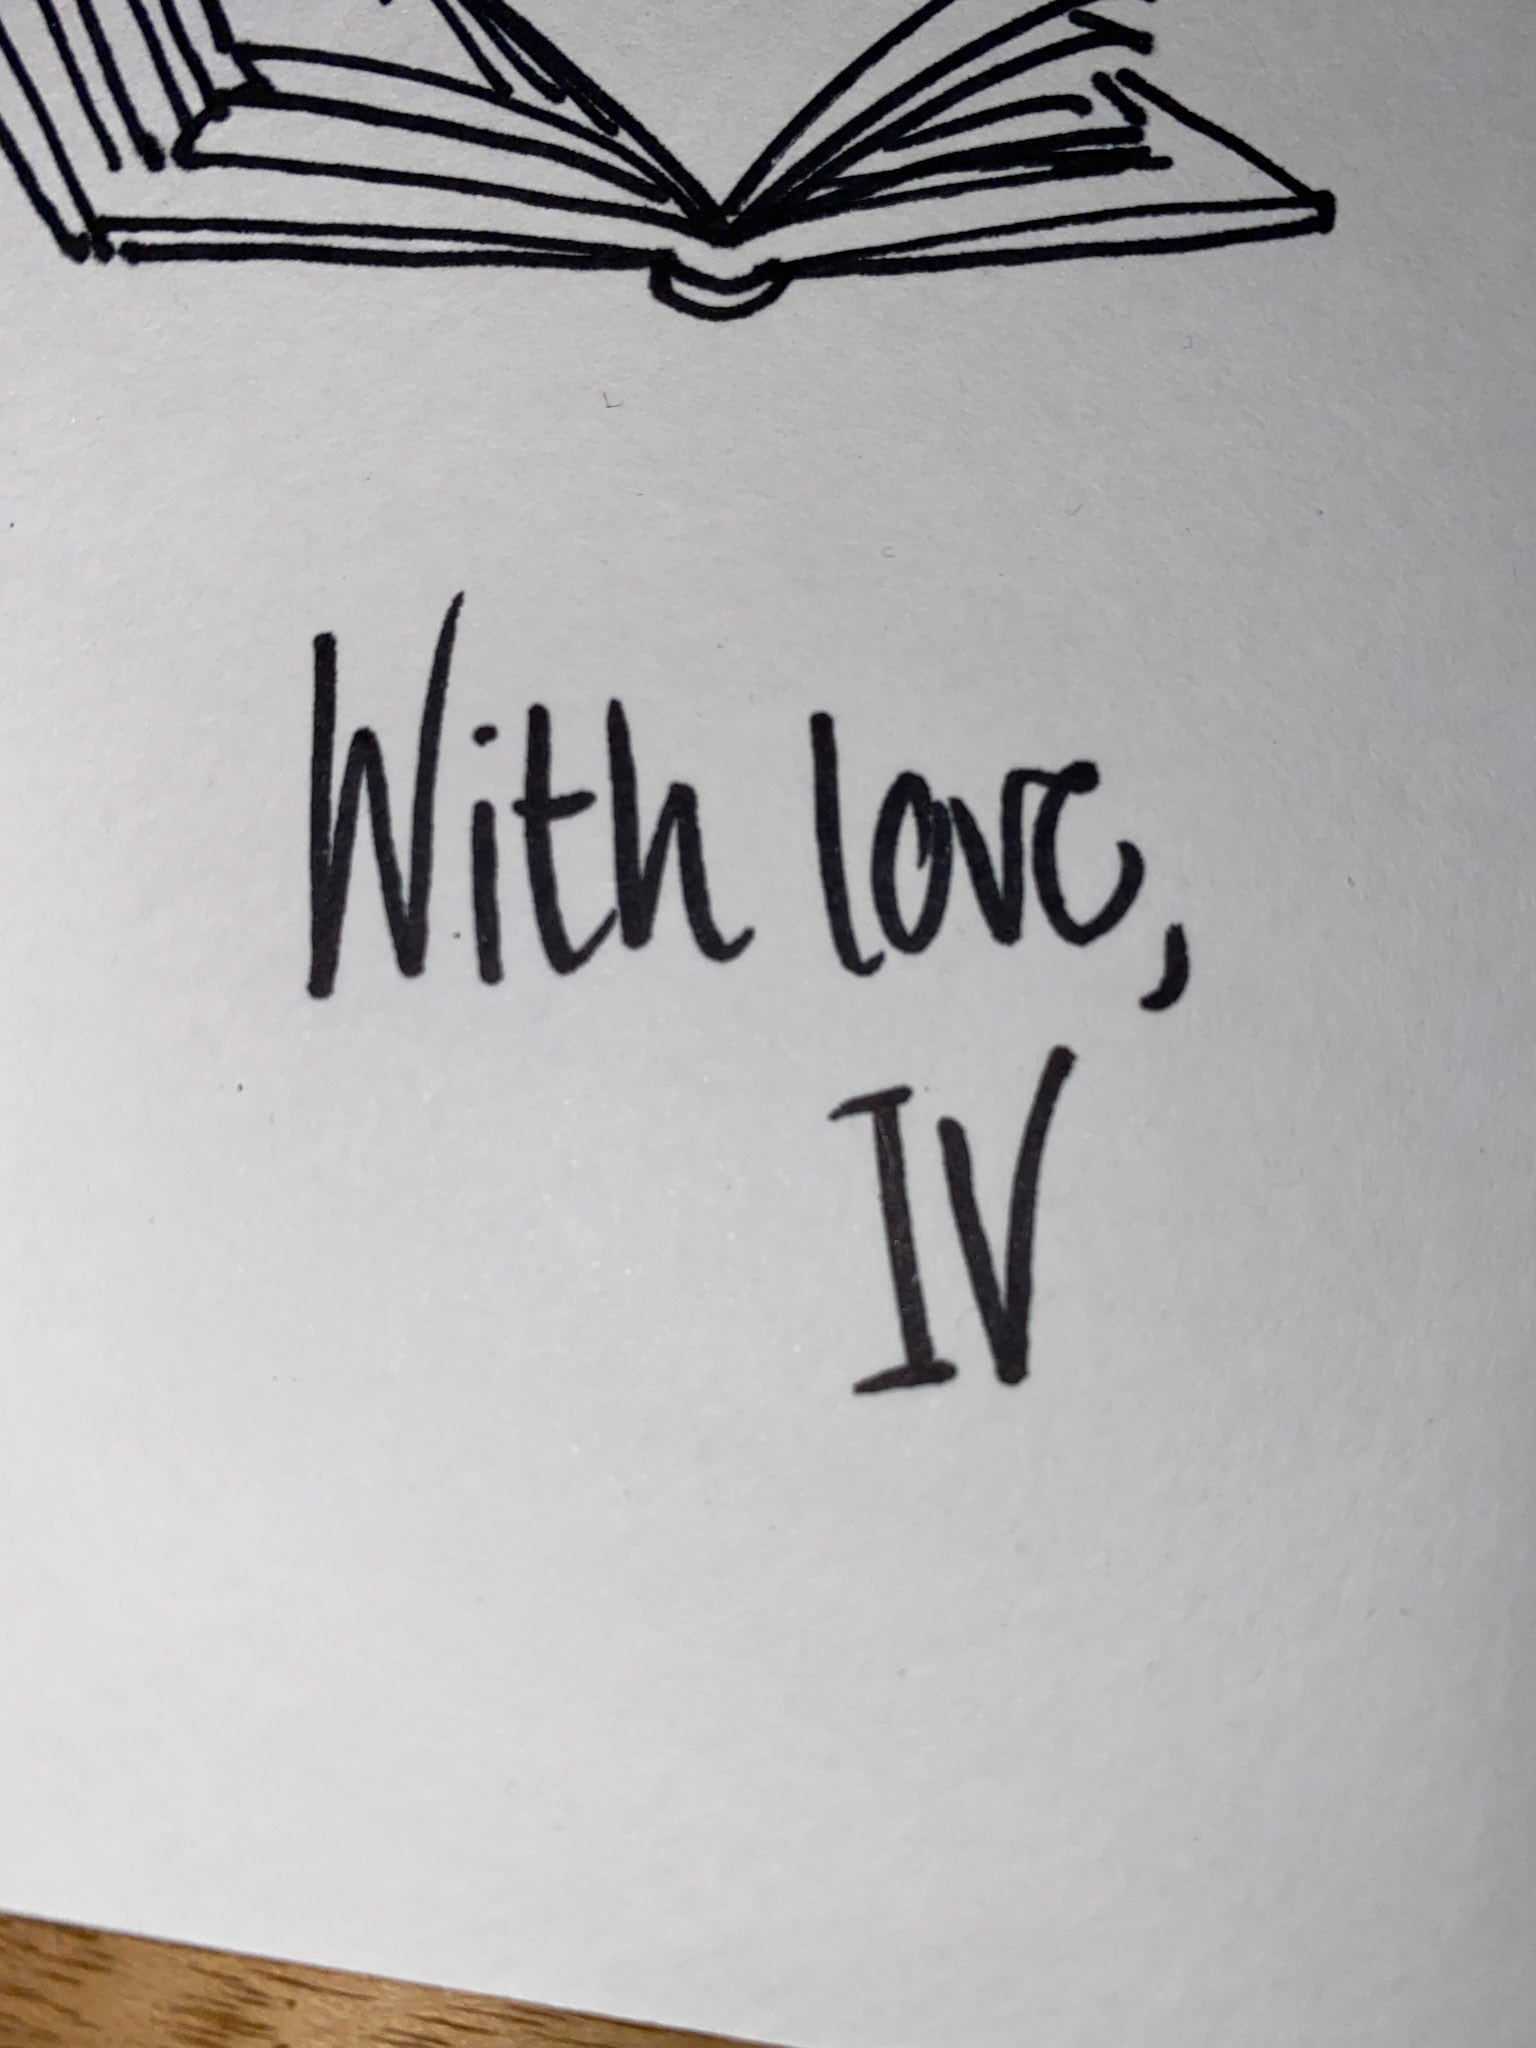 With love,
IV